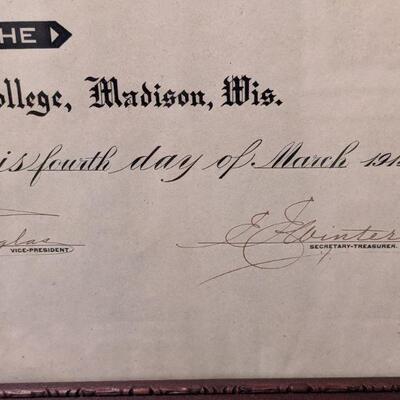 HE
ollege, Madison, Wis.
is fourth day of March 191
glas
VICE-PRESIDENT.
E F Winter
SECRETARY-TREASURER.